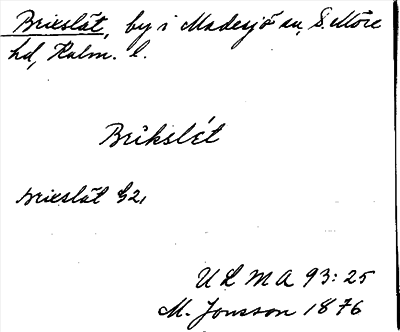 Brieslät, by i Madesjö sn, S. Möre
hd, Kalm. l.
Brikslét
Brieslät G21
ULMA 93:25
M. Jonsson 1876